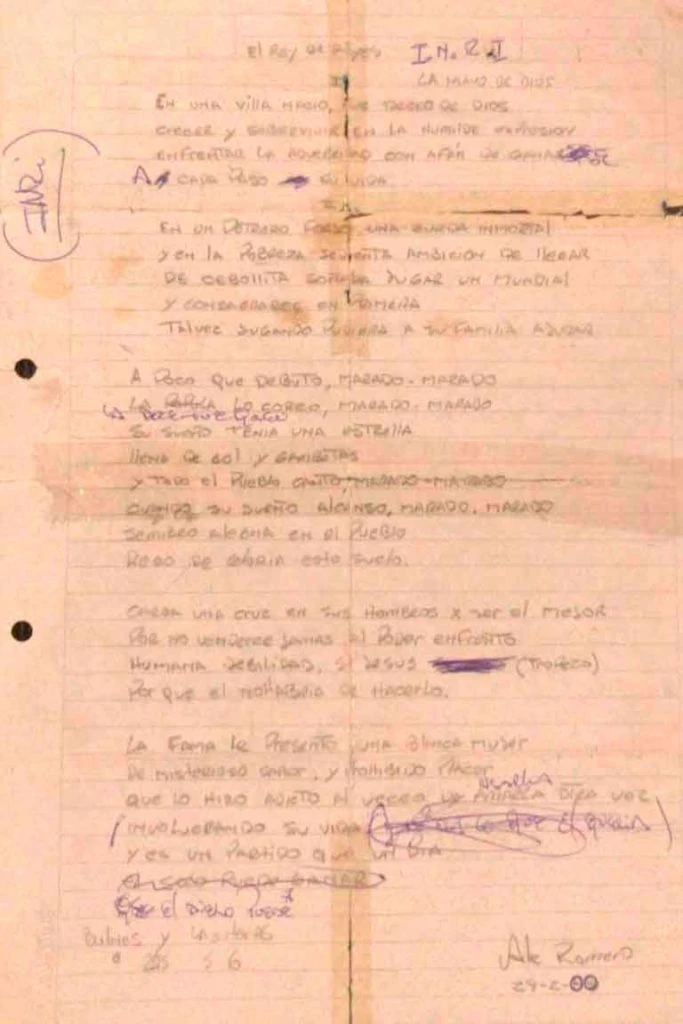 El Rey de Reyes I.N.R.I
LA MANO DE DIOS
INRI
EN UNA VILLA NACIO, FUE DECEO DE DIOS
CRECER Y SOBREVIVIR EN LA HUMILDE EXPRESION
ENFRENTAR LA ADVERSIDAD CON AFÁN DE
A CADA PASO SU VIDA
EN UN POTRERO FORJO, UNA ZURDA INMORTAL
Y EN LA POBREZA SEDIENTA AMBICION DE LLEGAR
DE CEBOLLITA SOÑABA JUGAR UN MUNDIAL
Y CONSAGRARCE EN PRIMERA
TALVEZ JUGANDO PUDIERA A SU FAMILIA AYUDAR
A POCO QUE DEBUTO, MARADO-MARADO
LA LO COREO, MARADO-MARADO
LA
SU SUEÑO TENIA UNA ESTRELLA
LLENA DE GOL Y GAMBETAS
Y TODO EL PUEBLO CANTO, MARADO-MARADO
SU SUEÑO ALCANSO, MARADO, MARADO
SEMBRO ALEGRIA EN EL PUEBLO
REGO DE GLORIA ESTE SUELO.
CARGA UNA CRUZ EN SUS HOMBROS X SER EL MEJOR
POR NO VENDERCE JAMAS AL PODER ENFRENTO
HUMANA DEBILIDAD, SI JESUS (TROPEZO)
POR QUE EL NO HABRIA DE HACERLO.
LA FAMA LE PRESENTO, UNA BLANCA MUJER
DE MISTERIOSO SABOR, Y PROHIBIDO PLACER
QUE LO HIZO ADICTO AL DECEO DE OTRA VEZ
INVOLUCRANDO SU VIDA
Y ES UN PARTIDO QUE UN DIA
EL SOLO PUEDE GANAR
El Diego
Y
Ale Romero
29-2-00